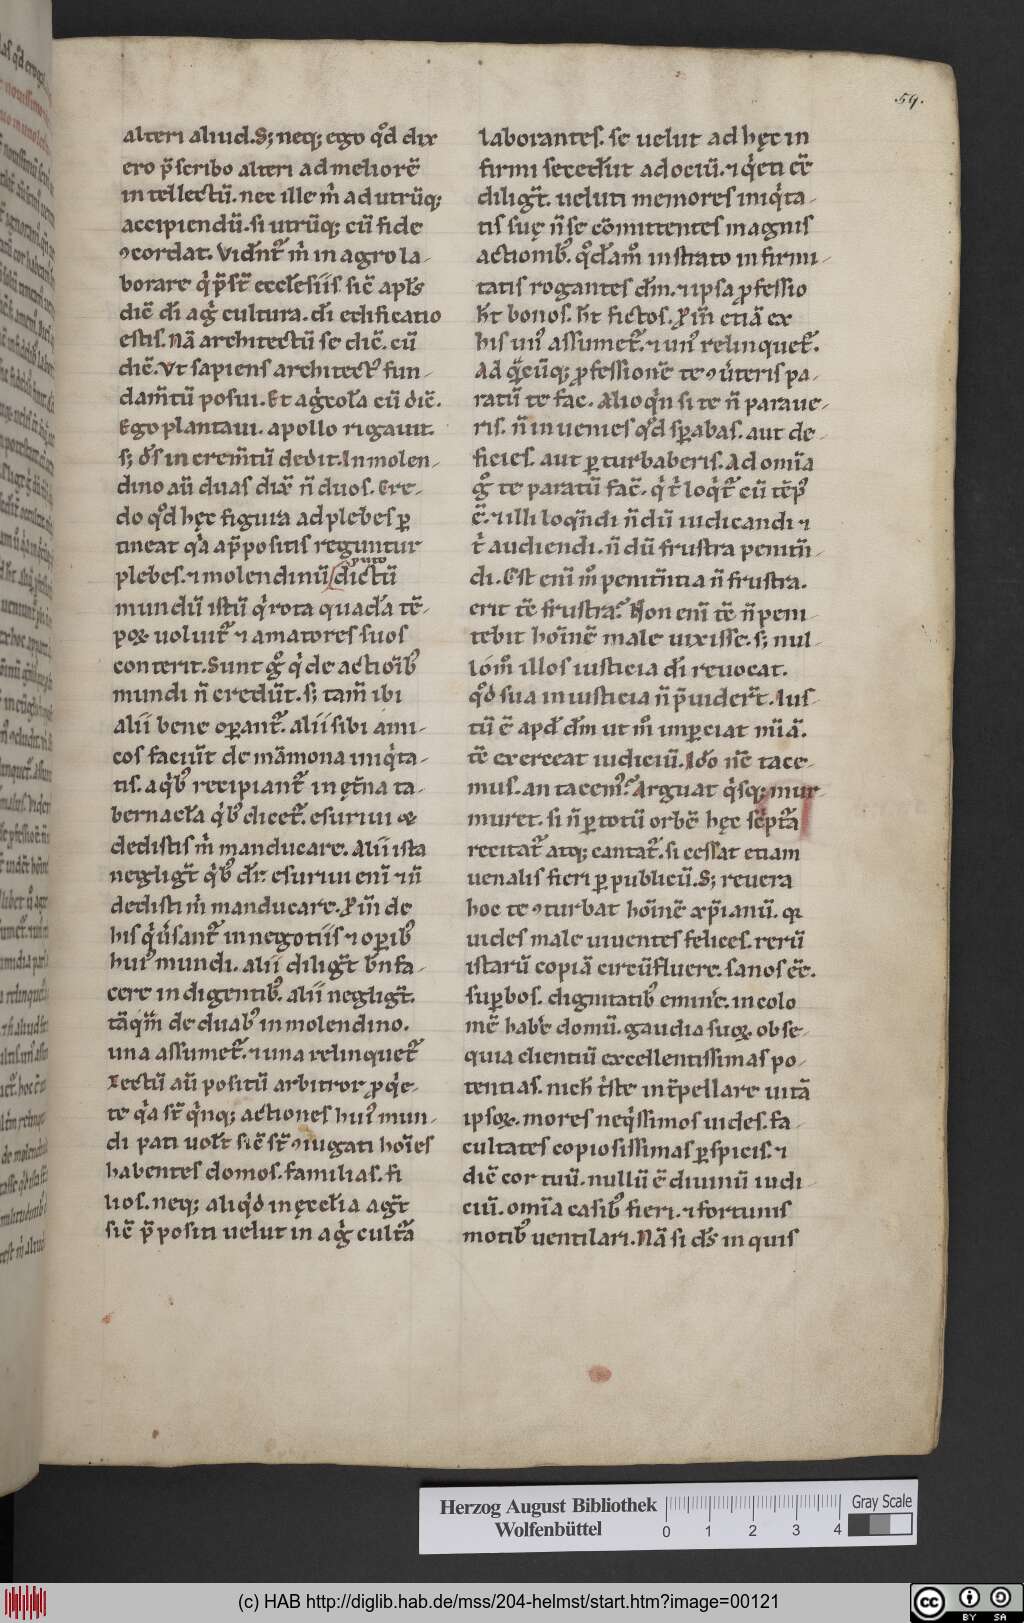 59.
alteri aliud. S; neq; ego qd̊ dix
ero p̃scribo alteri ad meliorẽ
intellectũ. nec ille m̊ ad utrũq;
accipiendũ. si utrũq; cũ fide
ꝯcordat. Vident̃ m̊ in agro la-
borare qͥ p̃st̃ ecclesiis sic̃ apl̃s
dic̃ dĩ agͥcultura. dĩ edificatio
estis. Nã architectũ se dic̃. cũ
dic̃. Vt sapiens architectꝰ fun-
dam̃tũ posui. Et agͥcola cũ dic̃.
Ego plantaui. apollo rigauit.
s; ds̃ increm̃tũ dedit. In molen-
dino aũ duas dix̃ ñ duos. Cre-
do qd̊ hęc figura ad plebes ꝑ
tineat qͥa ap̃positis reguntur
plebes. ⁊ molendinũ puto dictũ
mundũ istũ qͥ rota quadã tẽ-
poꝝ uoluit̃ ⁊ amatores suos
conterit. Sunt gͦ qͥ de actiõibꝰ
mundi ñ credũt. s; tam̃ ibi
alii bene oꝑant̃. alii sibi ami-
cos faciũt de mãmona iniqͥta-
tis. a qͥbꝰ recipiant̃ in et̃na ta-
bernacl̃a qͥbꝰ dicet̃. esuriui &
dedistis m̊ manducare. Alii ista
negligt̃ qͥbꝰ dr̃. esuriui eni᷒ ⁊ ñ
dedisti m̊ manducare. Ꝓin̄ de
his qͥ ũsant̃ in negotiis ⁊ oꝑibꝰ
huiꝰ mundi. alii diligt̃ bñfa-
cere indigentibꝰ. alii negligt̃.
tãqm̃ de duabꝰ in molendino.
una assumet̃. ⁊ una relinquet̃
Lectũ aũ positũ arbitror ꝓ qͥe-
te qͥa st̃ qͥnq; actiones huiꝰ mun-
di pati uolt̃ sic̃ st̃ ꝯiugati hoĩes
habentes domos. familias. fi
lios. neq; aliqͥd in ęccl̃ia agt̃
sic̃ p̃positi uelut in agͥcultã
laborantes. se uelut ad hęc in
firmi seced̃ut ad ociũ. ⁊ qͥeti cẽ
diligt̃. ueluti memores iniqͥta-
tis suę ñ se cõmittentes magnis
actionibꝰ. qd̊am̊ in strato infirmi-
tatis rogantes dm̃. ⁊ ipsa ꝓfessio
ht̃ bonos. ht̃ fictos. Ꝓin̄ etiã ex
his unꝰ assumet̃. ⁊ unꝰ relinquet̃.
Ad qc̃ũq; ꝓfessionẽ te ꝯũteris pa-
ratũ te fac. Alioqͥn si te ñ paraue-
ris. ñ inuenies qd̊ sꝑabas. aut de-
ficies. aut ꝑturbaberis. Ad omĩa
gͦ te paratũ fac̃. qͥ t̊ loqͥt̃ cũ tẽpꝰ
ẽ. ⁊ illi loqñdi ñdũ iudicandi ⁊
t̊ audiendi. ñdũ frustra penitñ-
di. Est enĩ m̊ penitñtia ñ frustra.
erit tc̃ frustra. Non enĩ tc̃ ñ peni
tebit hoĩnẽ male uixisse. s; nul-
lom̊ illos iusticia dĩ reuocat.
qd̊ sua iniusticia ñ p̃uidert̃. Ius-
tũ ẽ apd̃ dm̃ ut m̊ imꝑciat mĩã.
tc̃ exerceat iudiciũ. Ido̊ nc̃ tace-
mus. an tacemꝰ. Arguat qͥsq; mur
muret. si ñ ꝑ totũ orbẽ hęc sc̃ptã
recitat̃ atq; cantat̃. si cessat etiam
uenalis fieri ꝑ publicũ. S; reuera
hoc te ꝯturbat hoĩnẽ xp̃ianũ. qꝛ
uides male uiuentes felices. rerũ
istarũ copiã circũfluere. sanos ẽẽ.
suꝑbos. dignitatibꝰ eminẽ. incolo
mẽ habẽ domũ. gaudia suoꝝ. obse-
quia clientiũ excellentissimas po-
tentias. nich̃ t̊ste int̃pellare uitã
ipsoꝝ. mores neqͥssimos uides. fa-
cultates copiosissimas ꝑspicis. ⁊
dic̃ cor tuũ. nullũ ẽ diuinũ iudi-
ciũ. omĩa casibꝰ fieri. ⁊ fortunis
motibꝰ uentilari. Nã si ds̃ inquis
Herzog August Bibliothek
Wolfenbüttel
0 1 2 3 4
Gray Scale
(c) HAB http://diglib.hab.de/mss/204-helmst/start.htm?image=00121
cc BY SA